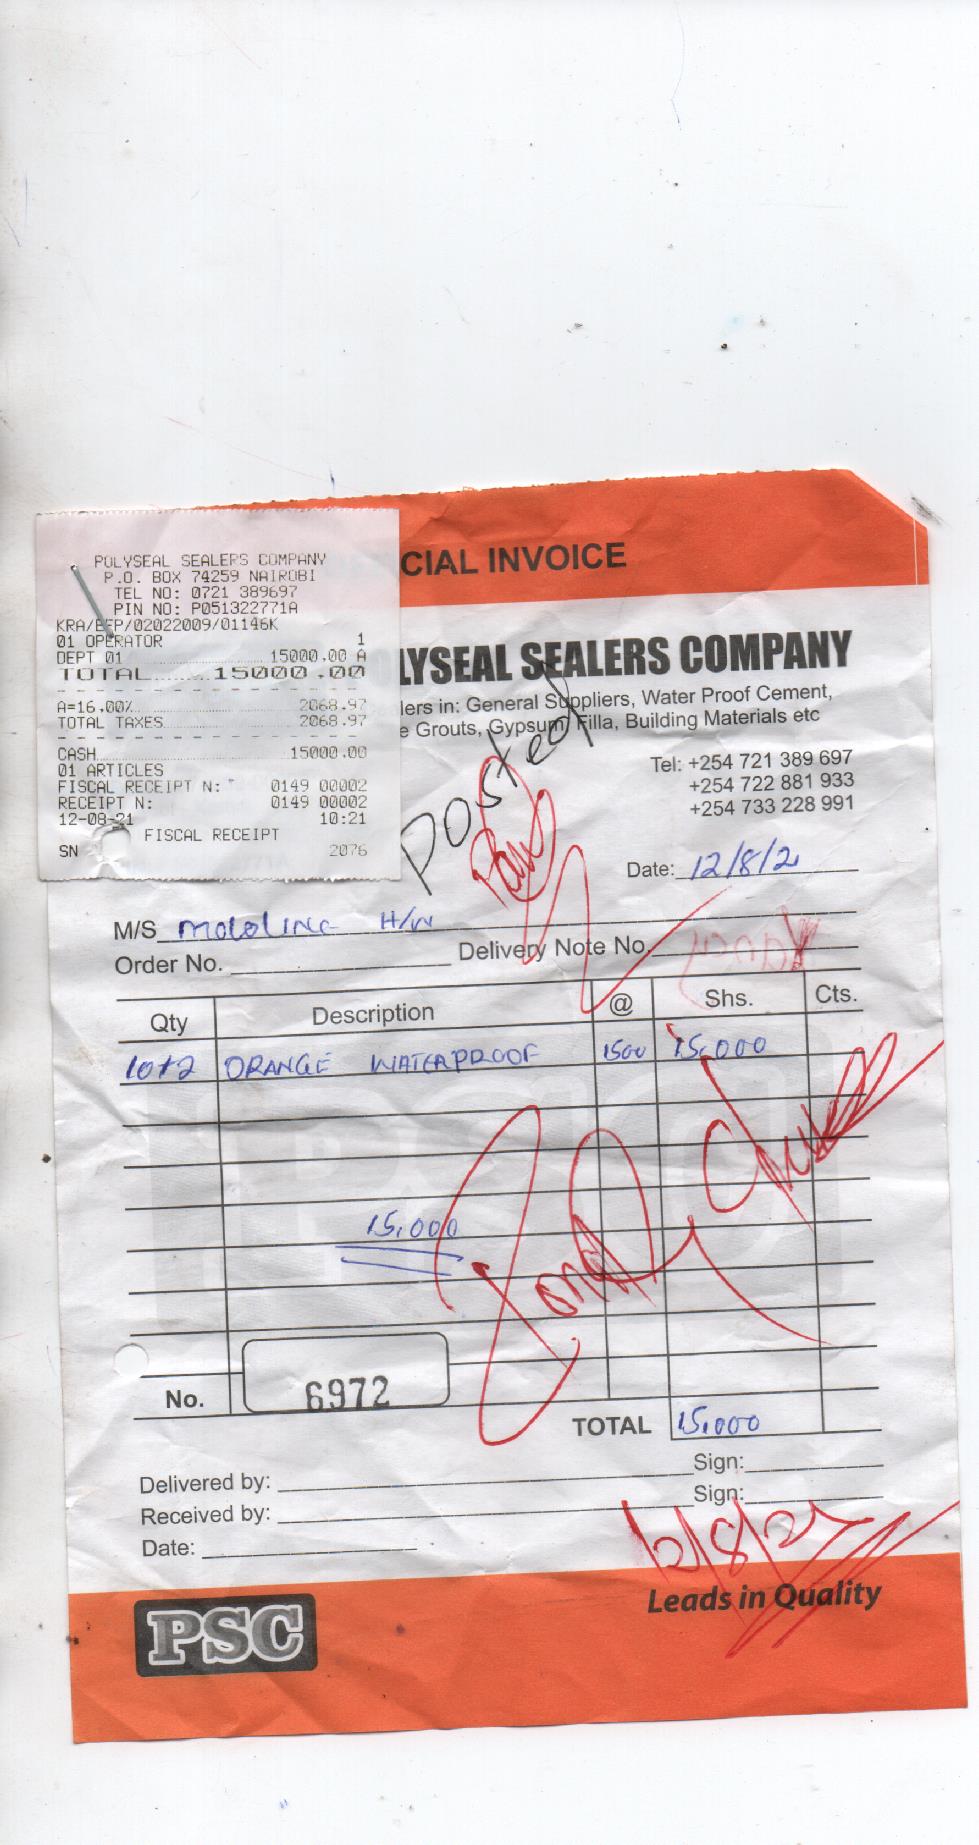 POLYSEAL SEALERS COMPANY
P.O. BOX 74259 NAIROBI
TEL NO: 0721 389697
PIN NO: P051322771A
KRA/EFP/02022009/01146K
01 OPERATOR 1
DEPT 01 15000.00 A
TOTAL 15000.00
A=16.00% 2068.97
TOTAL TAXES 2068.97
CASH 15000.00
01 ARTICLES
FISCAL RECEIPT N: 0149 00002
RECEIPT N: 0149 00002
12-08-21 10:21
FISCAL RECEIPT
SN 2076
CIAL INVOICE
LYSEAL SEALERS COMPANY
lers in: General Suppliers, Water Proof Cement,
e Grouts, Gypsum, Filla, Building Materials etc
Tel: +254 721 389 697
+254 722 881 933
+254 733 228 991
Posted
Date: 12/8/2
M/S H/W
Order No. Delivery Note No.
Qty Description @ Shs. Cts.
ORANGE WATERPROOF 1500 15,000
15,000
No. 6972
TOTAL 15,000
Delivered by: Sign:
Received by: Sign:
Date:
Leads in Quality
PSC